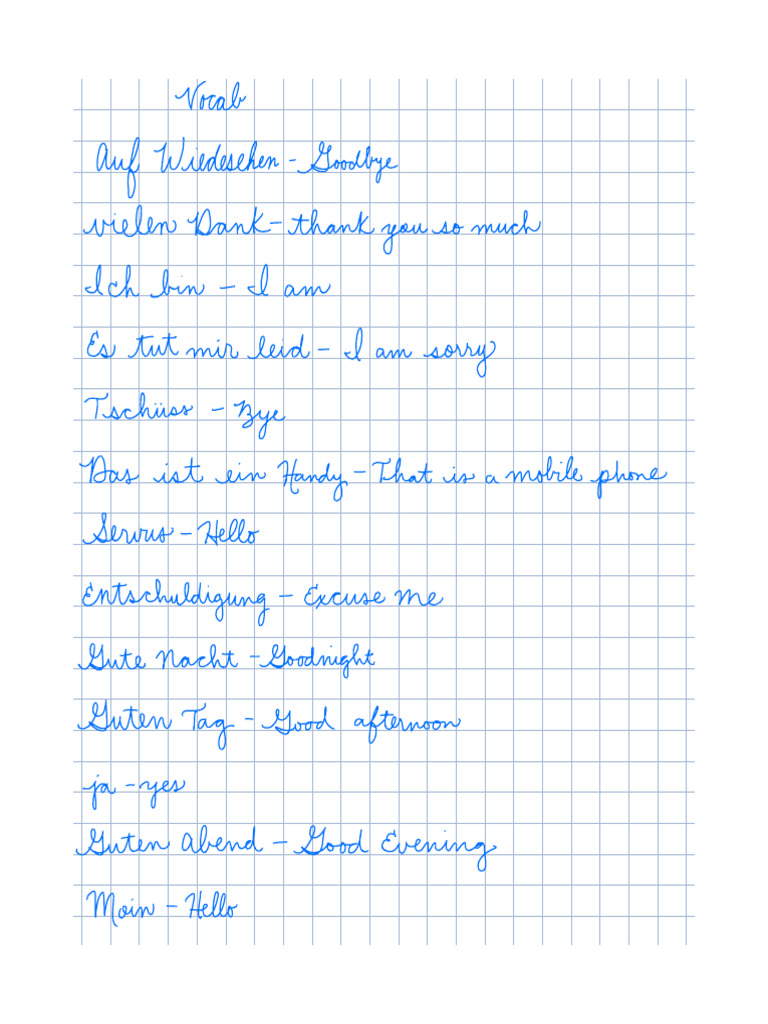 Vocab
Auf Wiedesehen - Goodbye
vielen Dank - thank you so much
Ich bin - I am
Es tut mir leid - I am sorry
Tschüss - Bye
Das ist ein Handy - That is a mobile phone
Servus - Hello
Entschuldigung - Excuse me
Gute Nacht - Goodnight
Guten Tag - Good afternoon
ja - yes
Guten Abend - Good Evening
Moin - Hello